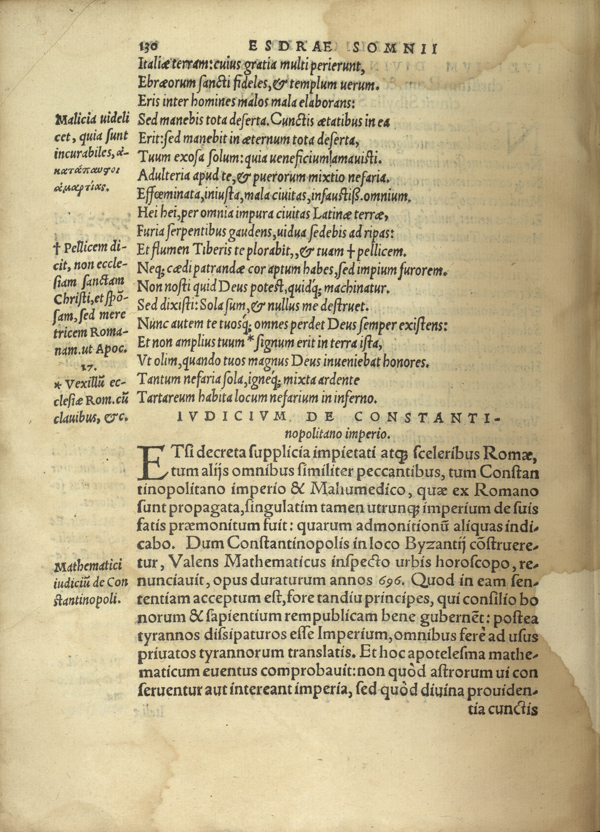 130 ESDRAE SOMNII
Italiæ terram: cuius gratia multi perierunt,
Ebræorum sancti fideles, & templum uerum.
Eris inter homines malos mala elaborans:
Sed manebis tota deserta. Cunctis ætatibus in ea
Erit: sed manebit in æternum tota deserta,
Tuum exosa solum: quia ueneficium amauisti.
Adulteria apud te, & puerorum mixtio nefaria.
Effœminata, iniusta, mala ciuitas, infaustiß. omnium.
Hei hei, per omnia impura ciuitas Latinæ terræ,
Furia serpentibus gaudens, uidua sedebis ad ripas:
Et flumen Tiberis te plorabit,, & tuam † pellicem.
Neq; cædi patrandæ cor aptum habes, sed impium furorem.
Non nosti quid Deus potest, quidq; machinatur.
Sed dixisti: Sola sum, & nullus me destruet.
Nunc autem te tuosq; omnes perdet Deus semper existens:
Et non amplius tuum * signum erit in terra ista,
Vt olim, quando tuos magnus Deus inueniebat honores.
Tantum nefaria sola, igneq; mixta ardente
Tartareum habita locum nefarium in inferno.
Malicia uideli
cet, quia sunt
incurabiles, ἀ-
κατάπαυστοι
ἁμαρτίας.
† Pellicem di-
cit, non eccle-
siam sanctam
Christi, et spõ-
sam, sed mere
tricem Roma-
nam. ut Apoc.
17.
* Vexillũ ec-
clesiæ Rom. cũ
clauibus, &c.
IVDICIVM DE CONSTANTI-
nopolitano imperio.
ETsi decreta supplicia impietati atq; sceleribus Romæ,
tum alijs omnibus similiter peccantibus, tum Constan
tinopolitano imperio & Mahumedico, quæ ex Romano
sunt propagata, singulatim tamen utrunq; imperium de suis
fatis præmonitum fuit: quarum admonitionũ aliquas indi-
cabo. Dum Constantinopolis in loco Byzantij cõstruere-
tur, Valens Mathematicus inspecto urbis horoscopo, re-
nunciauit, opus duraturum annos 696. Quod in eam sen-
tentiam acceptum est, fore tandiu principes, qui consilio bo
norum & sapientium rempublicam bene gubernẽt: postea
tyrannos dissipaturos esse Imperium, omnibus ferè ad usus
priuatos tyrannorum translatis. Et hoc apotelesma mathe-
maticum euentus comprobauit: non quòd astrorum ui con
seruentur aut intereant imperia, sed quòd diuina prouiden-
tia cunctis
Mathematici
iudiciũ de Con
stantinopoli.